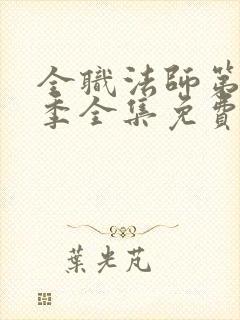 全職法師第
季全集免費
葉光芃